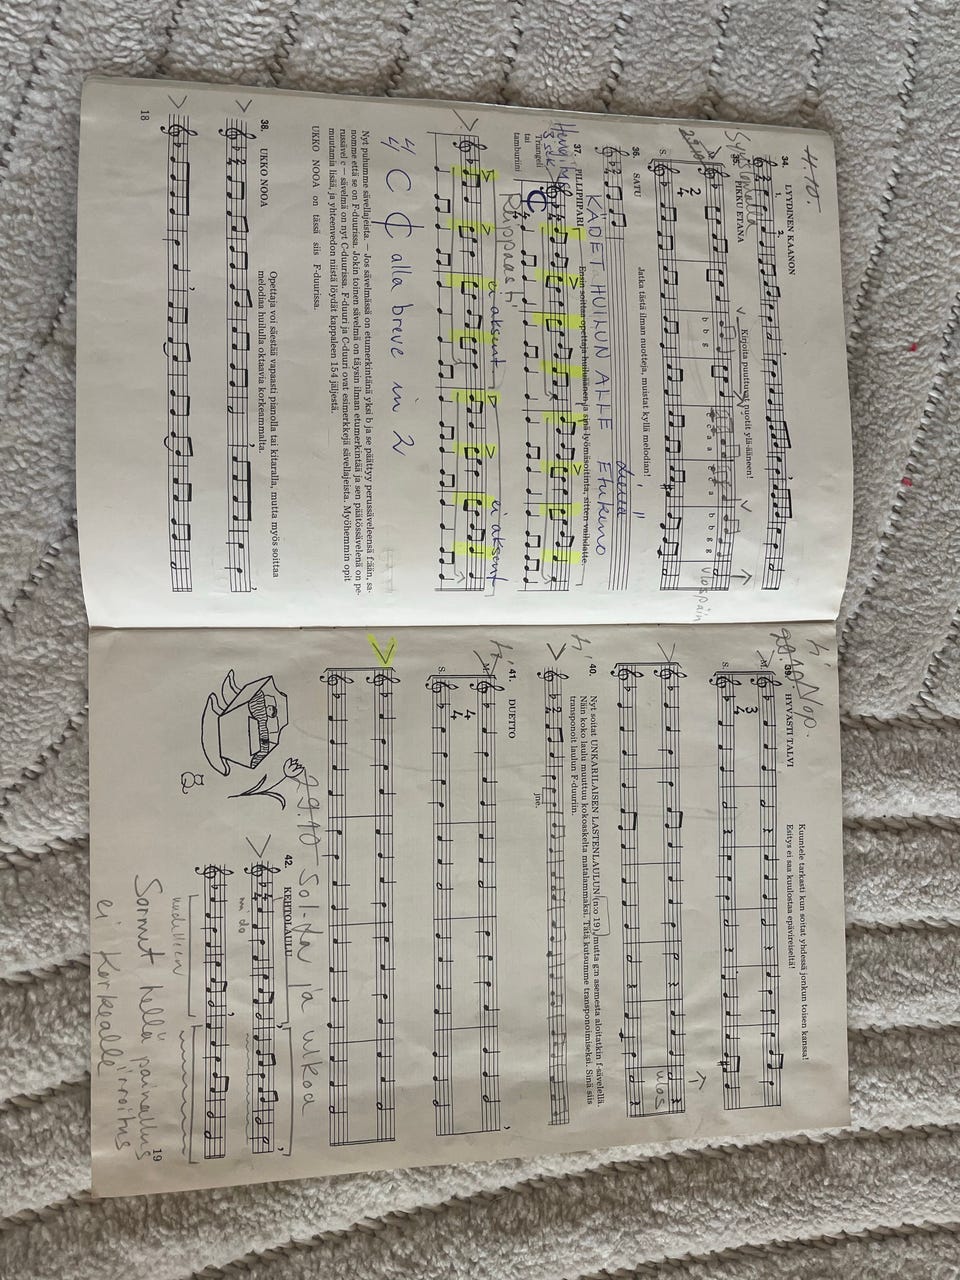 H. 10.
34. LYYDINEN KAANON
1.
2.
35. PIKKU ETANA
Kirjoita puuttuvat nuotit yli-ääneen!
S.
2
4
b b g
c c a a c c a b b g g
ulospäin
36. SATU
Jatka tästä ilman nuotteja, muistat kyllä melodian!
KÄDET HUILUN ALLE Etukeno
37. PILLIPIIPARI
Ensin soittaa opettaja huiluäänen ja sinä lyömäsoitinta, sitten vaihdatte.
Triangeli
tai
tamburiini
Reippaasti
ei aksent
ei aksent
4 C ₵ alla breve in 2
Nyt puhumme sävellajeista. — Jos sävelmässä on etumerkintänä yksi b ja se päättyy perussäveleensä f:ään, sa-
nomme että se on F-duurissa. Jokin toinen sävelmä on täysin ilman etumerkintää ja sen päätössävelenä on pe-
russävel c — sävelmä on nyt C-duurissa. F-duuri ja C-duuri ovat esimerkkejä sävellajeista. Myöhemmin opit
muutamin lisää, ja yhteenvedon niistä löydät kappaleen 154 jäljestä.
UKKO NOOA on tässä siis F-duurissa.
38. UKKO NOOA
Opettaja voi säestää vapaasti pianolla tai kitaralla, mutta myös soittaa
melodiaa huilulla oktaavia korkeammalta.
18
39. HYVÄSTI TALVI
Kuuntele tarkasti kun soitat yhdessä jonkun toisen kanssa!
Esitys ei saa kuulostaa epävireiseltä!
M.
S.
3
4
ulos
40. Nyt soitat UNKARILAISEN LASTENLAULUN (n:o 19), mutta g:n asemesta aloitatkin f-sävelellä.
Näin koko laulu muuttuu kokoaskelta matalammaksi. Tätä kutsumme transponoimiseksi. Sinä siis
transponoit laulun F-duuriin.
jne.
41. DUETTO
M.
S.
4
4
29.10 Sol-fa ja ulkoa
42. KEHTOLAULU
mi do
uudelleen
Sormut hellä painallus
ei korkealle irroitus
19